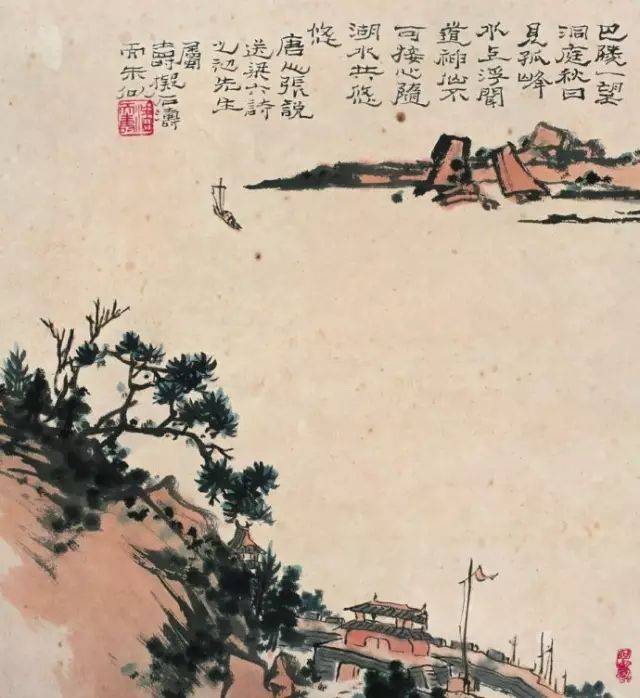 巴陵一望
洞庭秋日
見孤峰
水上浮聞
道神仙不
可接心隨
湖水共悠
悠
唐人張說
送梁六詩
先生
屬
壽擬石
而未似